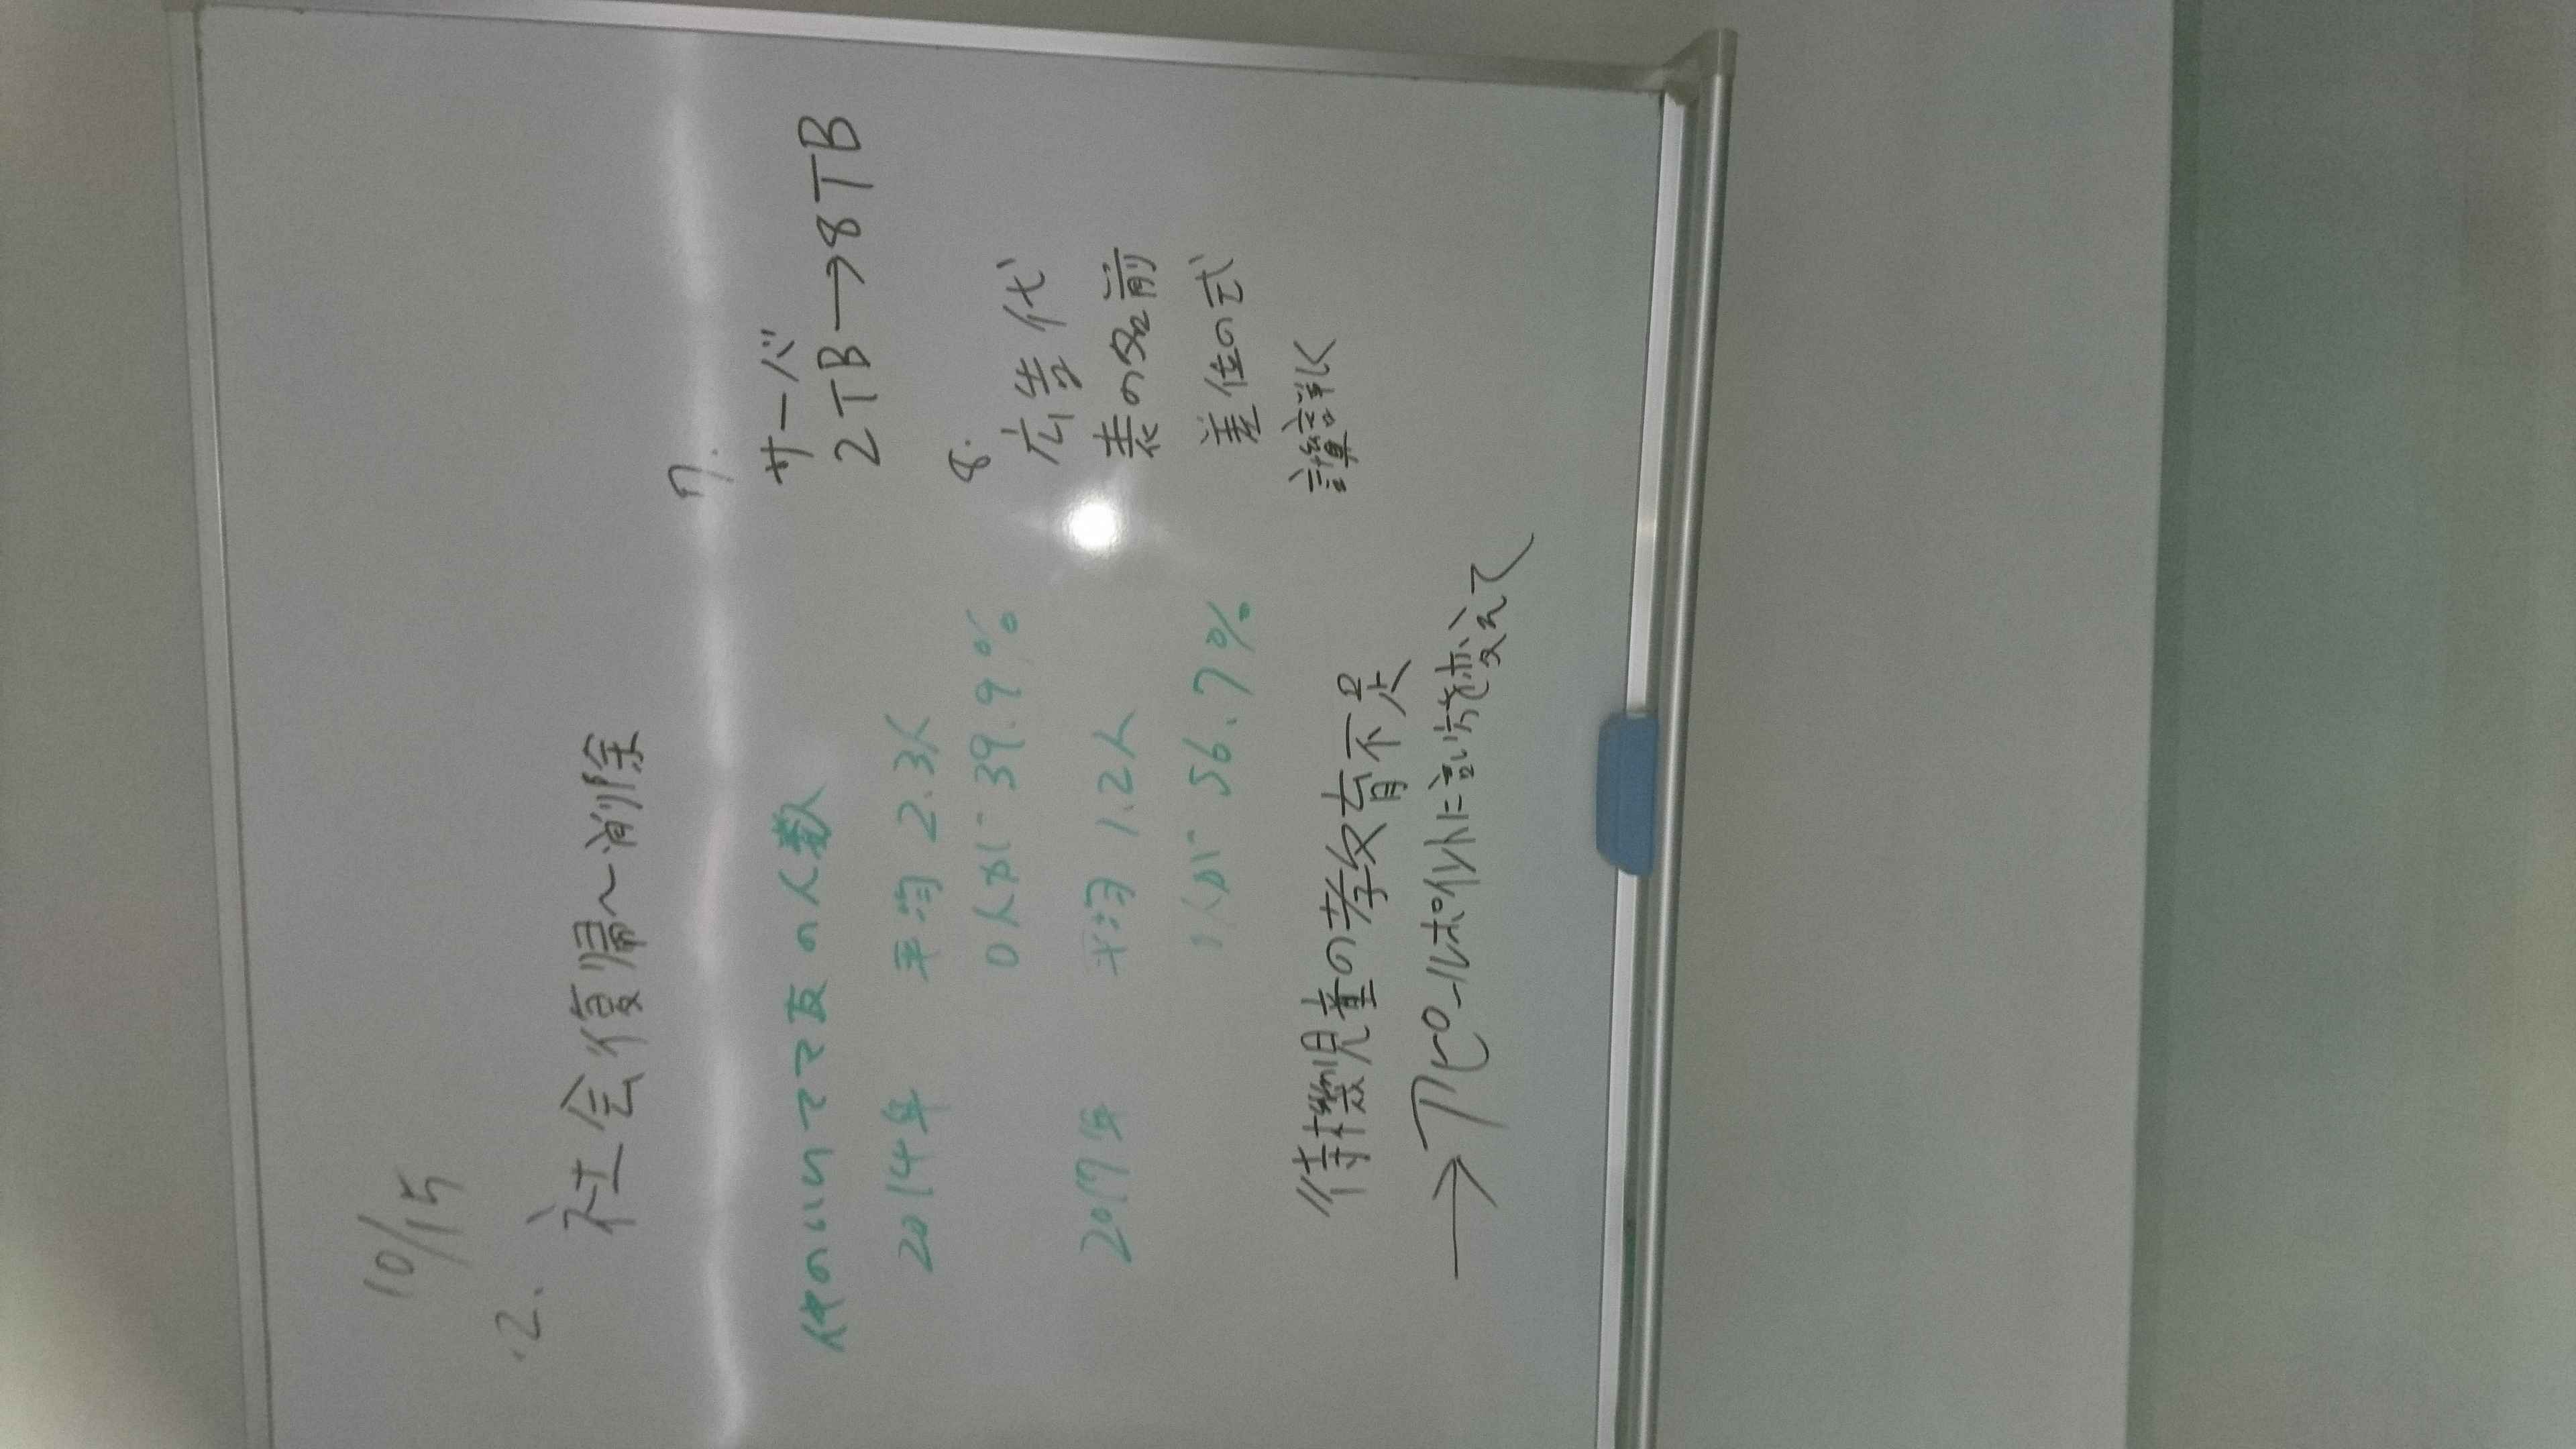 10/15
2.
社会復帰〜削除
仲のいいママ友の人数
2014年 平均 2.3人
0人が 39.9%
2017年 平均 1.2人
0人が 56.7%
待機児童の教育不足
→アピールポイントに言い方を変えて
7.
サーバ
2TB→8TB
8.
広告代
表の名前
差位の式
計算詳しく